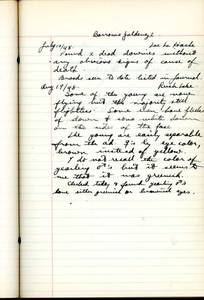 Barrows Goldeneye
July 17/48 Lac La Hache
Found 2 dead downies without
any obvious signs of cause of
death.
Broods seen to date listed in journal.
Aug 17/48
Some of the young are now
flying but the majority still
flightless. Some have flecks
of down & some white down
on the side of the face.
The young are easily separable
from the ad. ♀'s by eye color,
brown instead of yellow.
I do not recall the color of
yearling ♂'s but it seems to
me that it was greenish.
Checked today & found yearling ♂'s
have either greenish or brownish eyes.